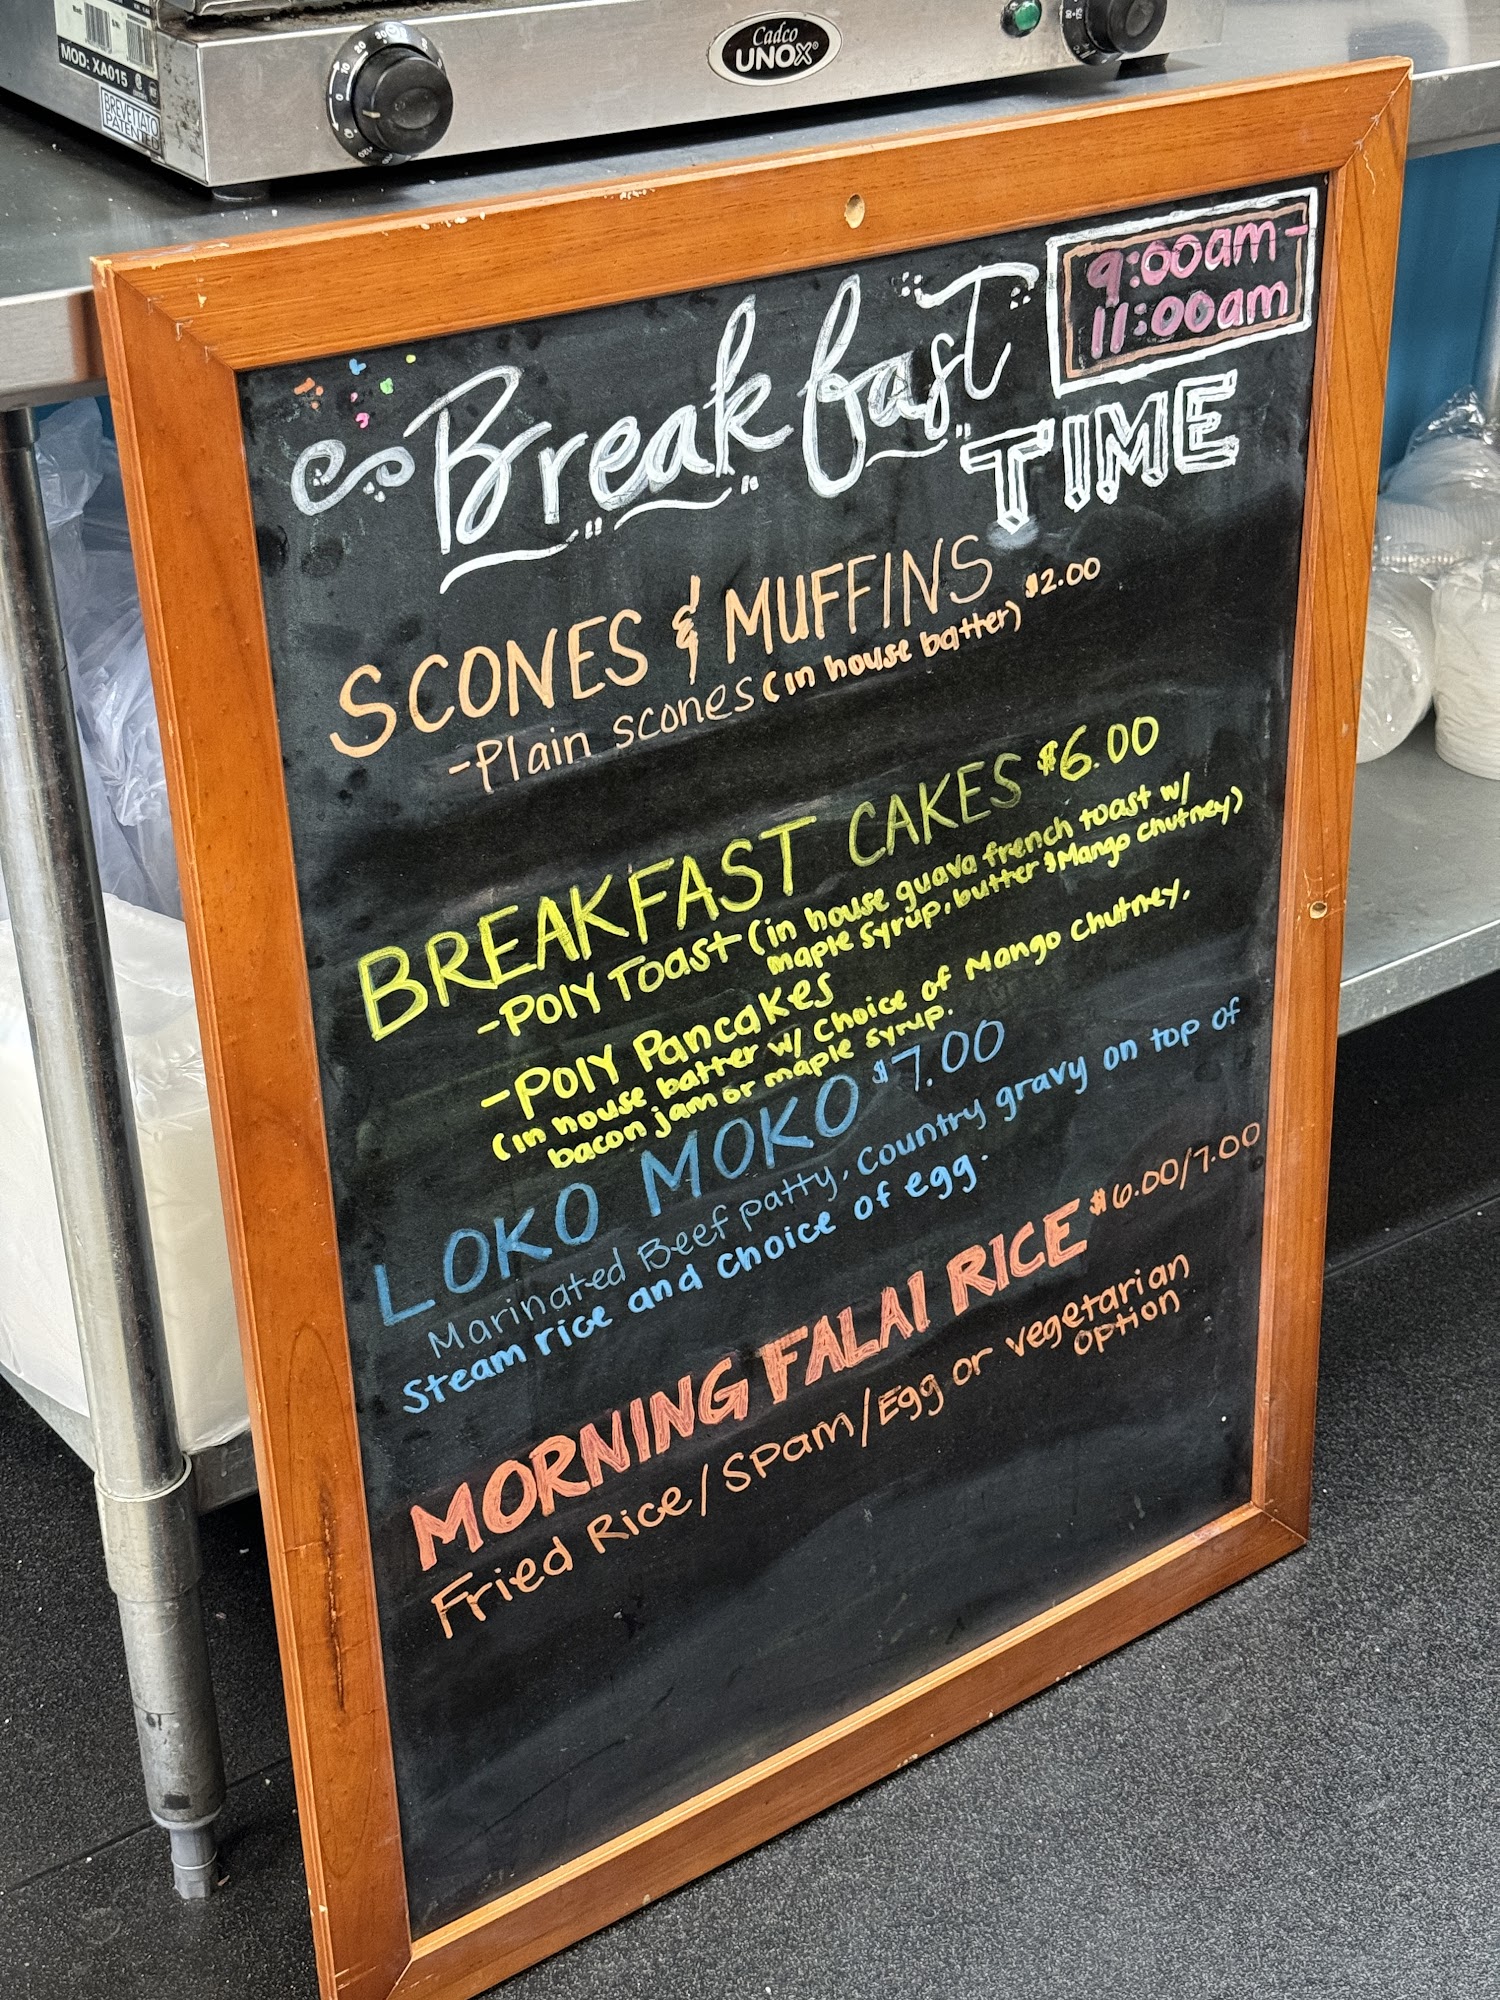 MOD: XA015
BREVETTATO
PATENTED
Cadco
UNOX®
9:00am-
11:00am
Breakfast
TIME
SCONES & MUFFINS
-Plain scones (in house batter) $2.00
BREAKFAST CAKES $6.00
-POLY Toast (in house guava french toast w/
maple syrup, butter & Mango chutney)
-POLY Pancakes
(in house batter w/ choice of Mango chutney,
bacon jam or maple syrup.
LOKO MOKO $7.00
Marinated Beef patty, country gravy on top of
steam rice and choice of egg.
MORNING FALAI RICE $6.00/7.00
Fried Rice/Spam/Egg or vegetarian
option